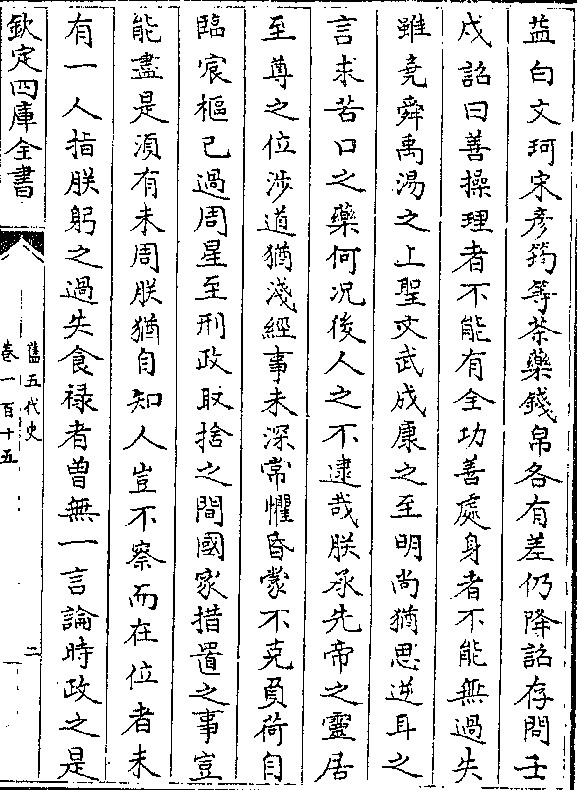 益白文珂宋彥筠等茶藥錢帛各有差仍降詔存問壬
戌詔曰善操理者不能有全功善處身者不能無過失
雖堯舜禹湯之上聖文武成康之至明尚猶思逆耳之
言求苦口之藥何況後人之不逮哉朕承先帝之靈居
至尊之位涉道猶淺經事未深常懼昏蒙不克負荷自
臨宸極已過周星至刑政取捨之間國家措置之事豈
能盡是須有未周朕猶自知人豈不察而在位者未
有一人指朕躬之過失食祿者曾無一言論時政之是
欽定四庫全書
舊五代史
卷一百十五
二